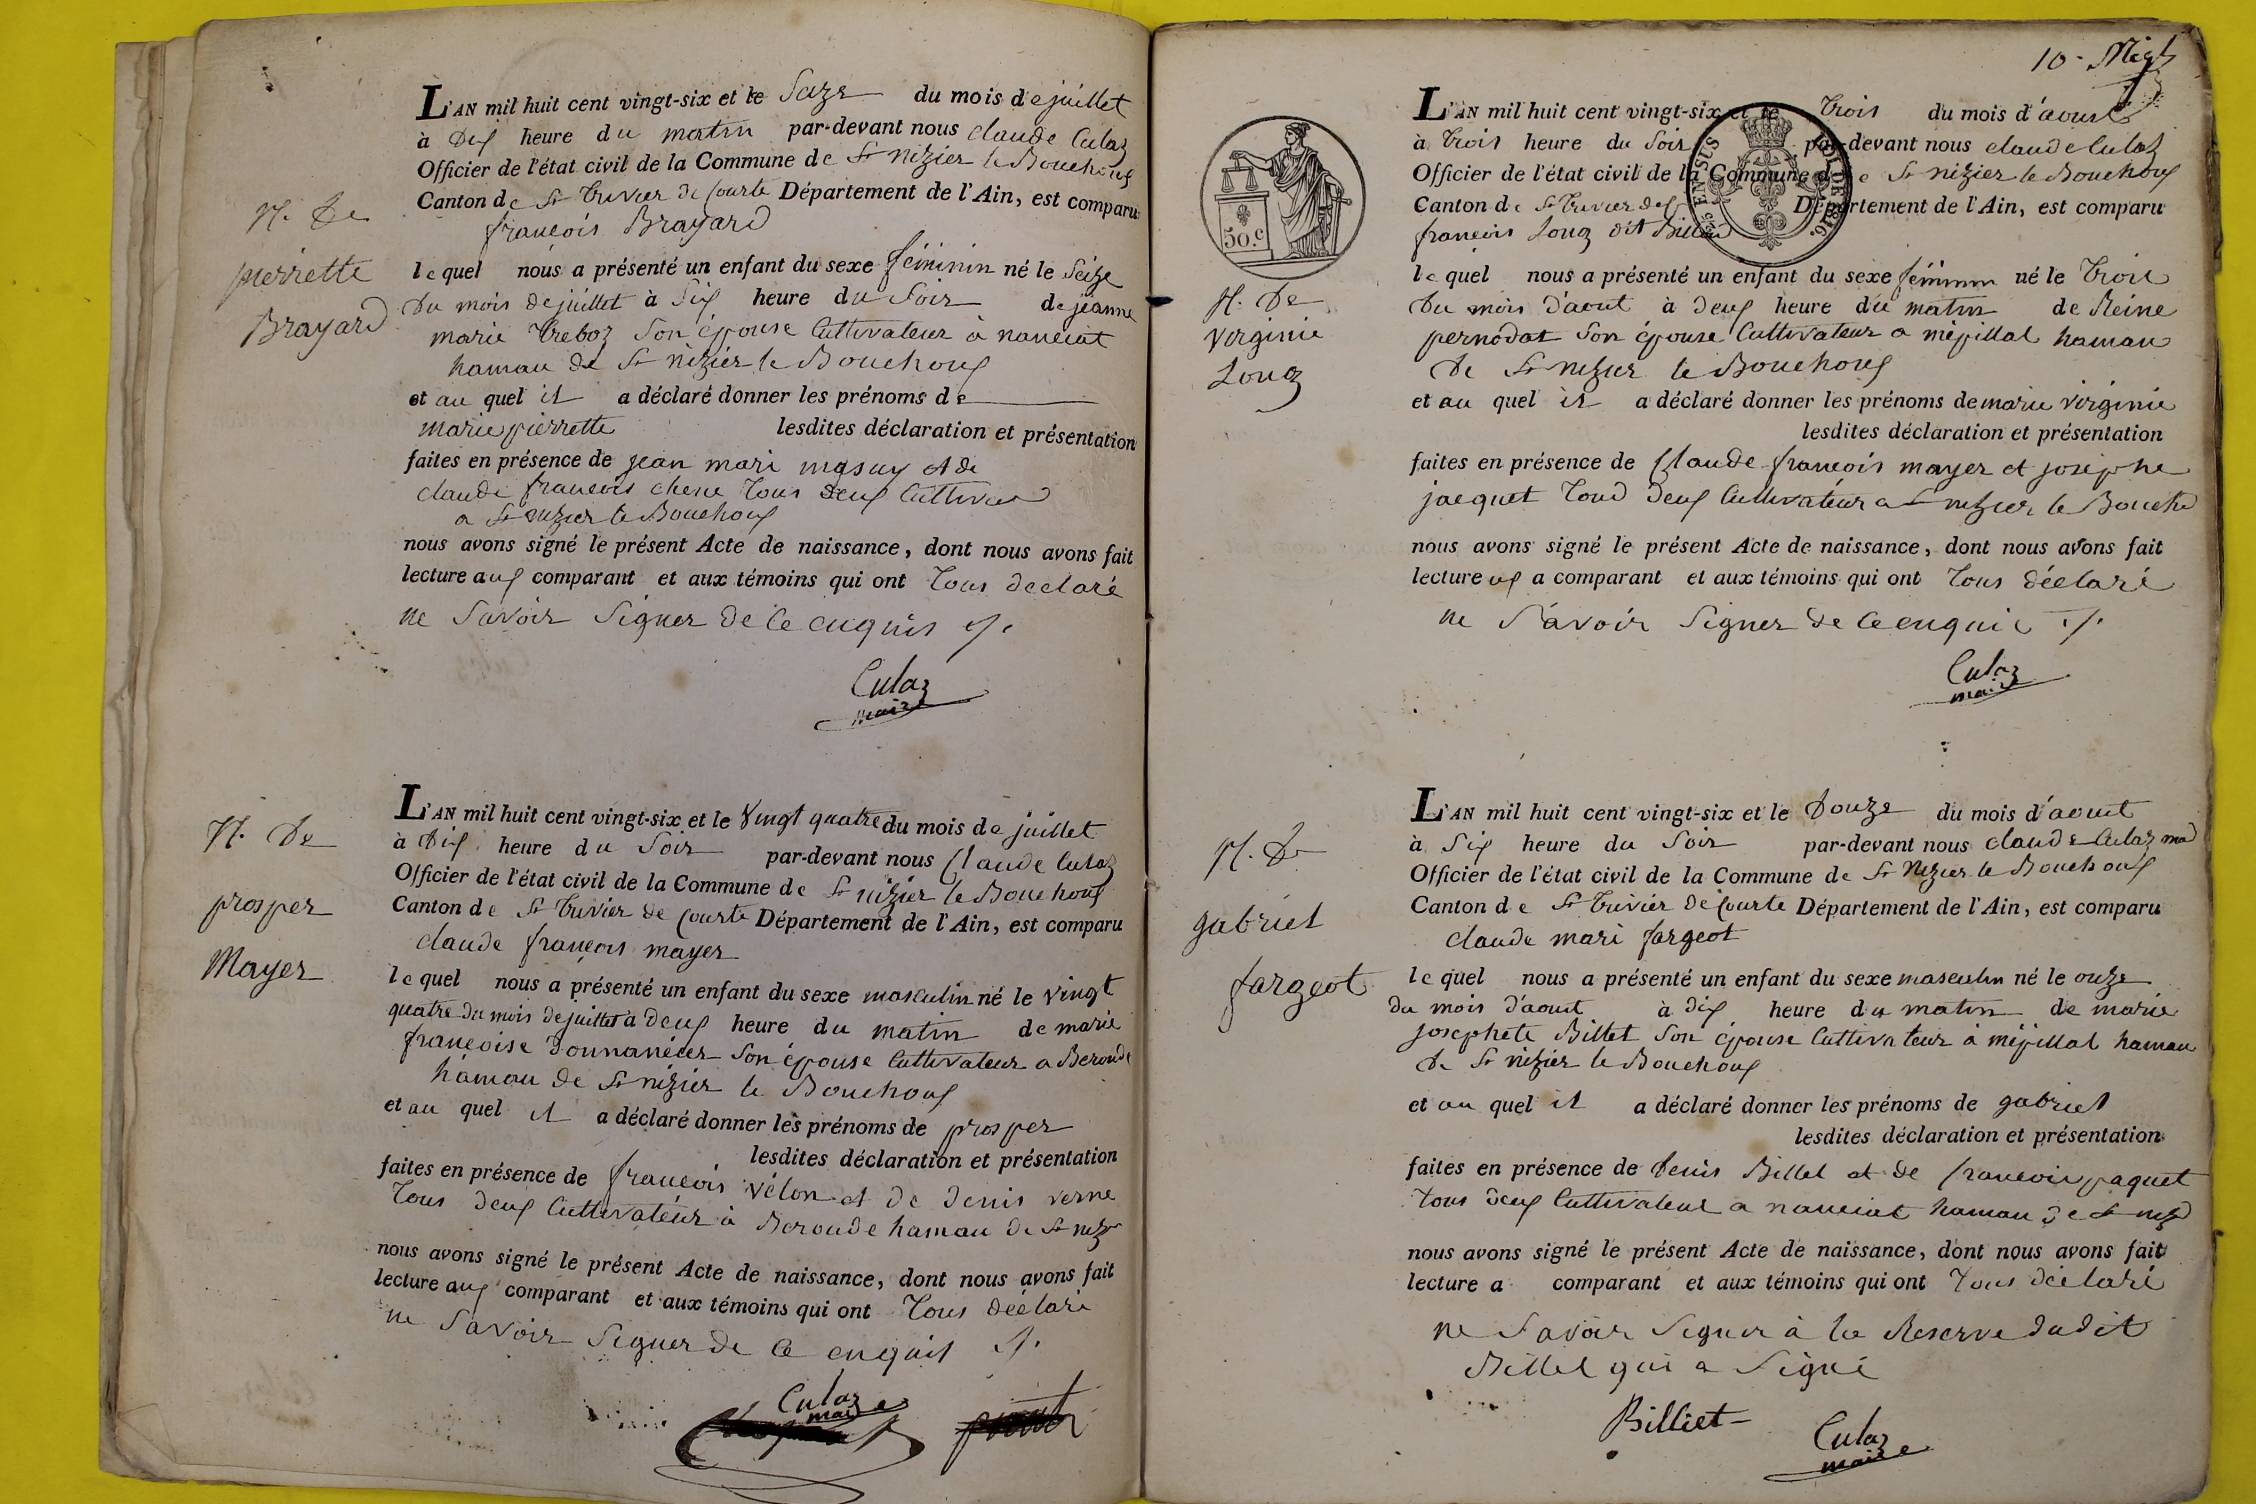 L'AN mil huit cent vingt-six et le Saze du mois de juillet
à Dix heure du matin par-devant nous claude Culaz
Officier de l'état civil de la Commune de St nizier le Bouchoux
Canton de St Trivier de Courte Département de l'Ain, est comparu
françois Brayard
N. De
pierrette
Brayard
lequel nous a présenté un enfant du sexe féminin né le Seize
du mois de juillet à Six heure du Soir de jeanne
marie Treboz Son épouse Cultivateur à nanciat
hamau de St nizier le Bouchoux
et au quel il a déclaré donner les prénoms de
marie pierrette lesdites déclaration et présentation
faites en présence de jean mari et de
claude françois chene Tous Deux
a St nizier le Bouchoux
nous avons signé le présent Acte de naissance, dont nous avons fait
lecture aux comparant et aux témoins qui ont Tous déclaré
ne Savoir Signer de Ce enquis
Culaz
maire
L'AN mil huit cent vingt-six et le Vingt quatre du mois de juillet
à Dix heure du Soir par-devant nous Claude Culaz
Officier de l'état civil de la Commune de St nizier le Bouchoux
Canton de St Trivier de Courte Département de l'Ain, est comparu
claude françois mayer
N. De
prosper
Mayer
lequel nous a présenté un enfant du sexe masculin né le vingt
quatre du mois de juillet à deux heure du matin de marie
françoise Son épouse Cultivateur a Beroude
hamau de St nizier le Bouchoux
et au quel il a déclaré donner les prénoms de prosper
lesdites déclaration et présentation
faites en présence de françois vélon et de denis verne
Tous deux Cultivateur à Beroude hamau de St
nous avons signé le présent Acte de naissance, dont nous avons fait
lecture aux comparant et aux témoins qui ont Tous déclaré
ne Savoir Signer de Ce enquis
Culaz
maire
10 -
50.c
L'AN mil huit cent vingt-six et le Trois du mois d'aoust
à Trois heure du Soir par-devant nous claude Culaz
Officier de l'état civil de la Commune de St nizier le Bouchoux
Canton de St Trivier de Département de l'Ain, est comparu
françois Louz dit
N. De
virginie
Louz
lequel nous a présenté un enfant du sexe féminin né le Trois
Du mois D'aout à Deux heure du matin de Reine
pernodat Son épouse Cultivateur a mépillat hamau
De St nizier le Bouchoux
et au quel il a déclaré donner les prénoms de marie virginie
lesdites déclaration et présentation
faites en présence de Claude françois mayer et josephe
jacquet Deux Cultivateur a St nizier le
nous avons signé le présent Acte de naissance, dont nous avons fait
lecture a comparant et aux témoins qui ont Tous déclaré
ne Savoir Signer de Ce enquis
Culaz
maire
L'AN mil huit cent vingt-six et le Douze du mois d'aout
à Six heure du Soir par-devant nous claude Culaz
Officier de l'état civil de la Commune de St Nizier le Bouchoux
Canton de St Trivier de Courte Département de l'Ain, est comparu
claude mari fargeot
N. De
gabriel
fargeot
lequel nous a présenté un enfant du sexe masculin né le onze
du mois d'aout à dix heure du matin de marie
josephete Billet Son épouse Cultivateur à mépillat hamau
De St nizier le Bouchoux
et au quel il a déclaré donner les prénoms de gabriel
lesdites déclaration et présentation
faites en présence de Denis Billet et de françois paquet
tous deux Cultivateur a nanciat hamau de St
nous avons signé le présent Acte de naissance, dont nous avons fait
lecture a comparant et aux témoins qui ont Tous déclaré
ne Savoir Signer à la Reserve dudit
Billet qui a Signé
Billiet
Culaz
maire